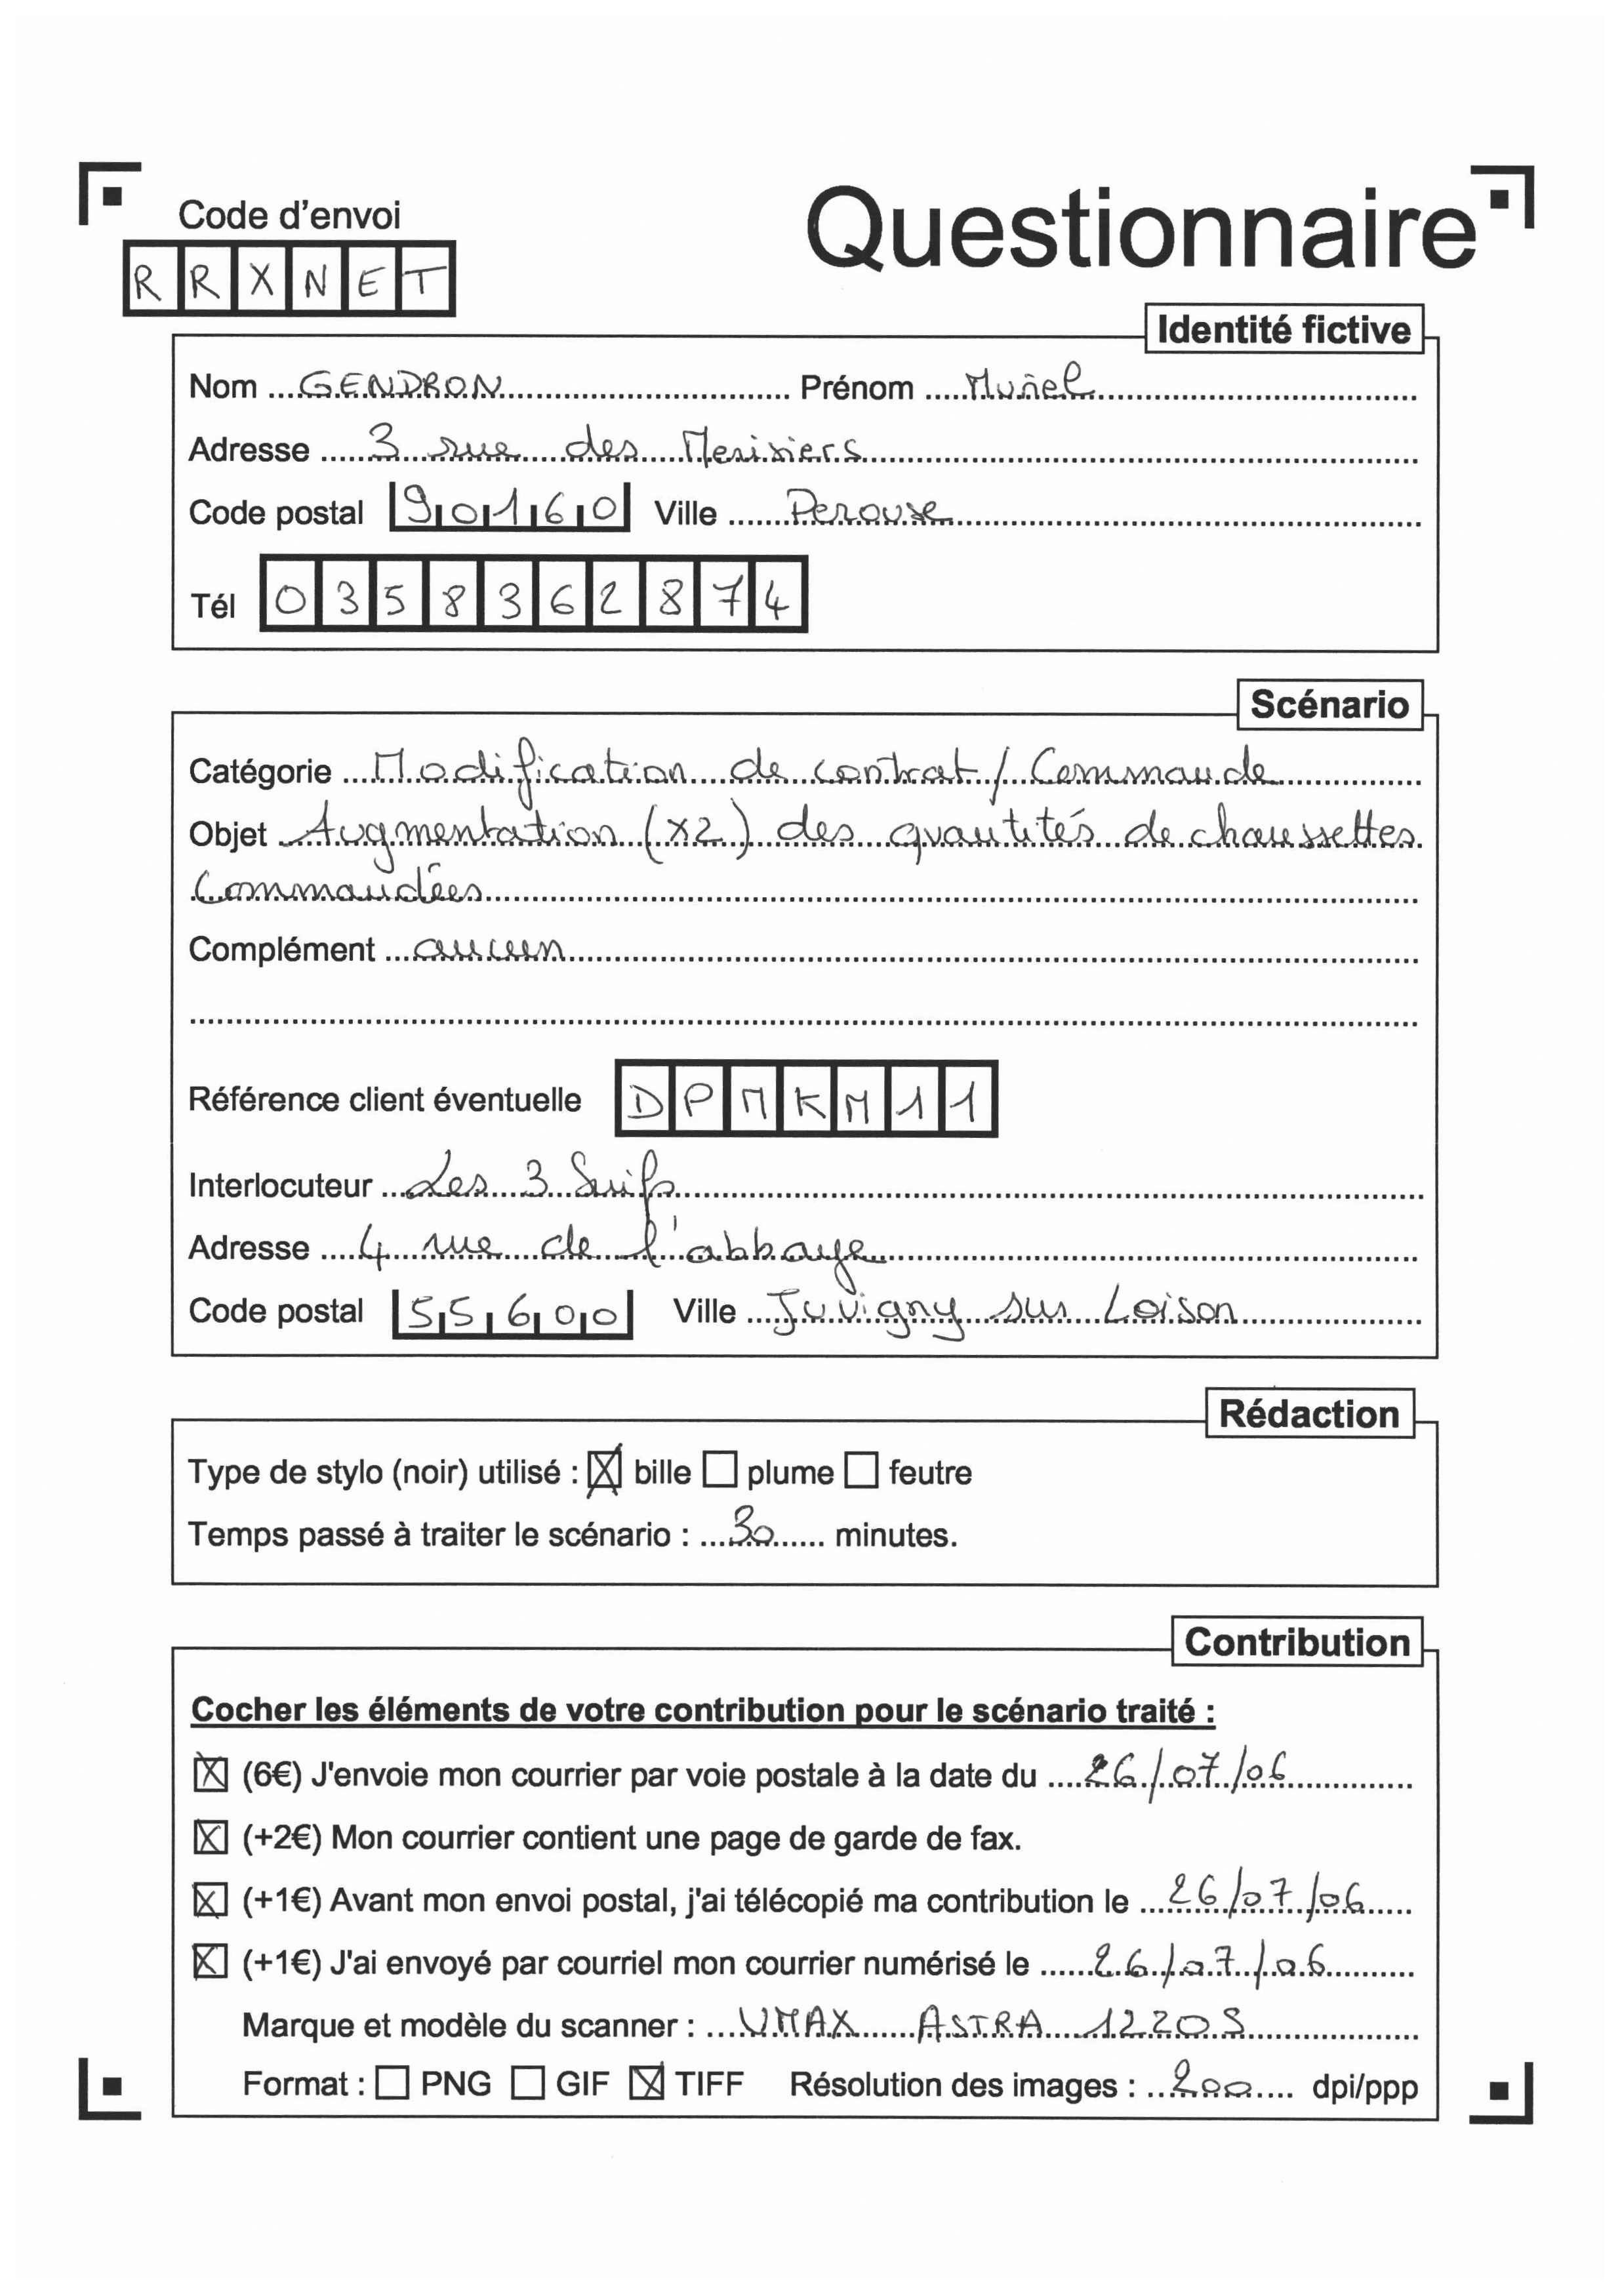 Code d'envoi
Questionnaire
RRXNET
Identité fictive
Nom GENDRON Prénom Muriel
Adresse 3 rue des Merisiers
Code postal 90160 Ville Perouse
Tél 0358362874
Scénario
Catégorie Modification de contrat / Commande
Objet Augmentation (x2) des quantités de chaussettes
Commandées
Complément aucun
Référence client éventuelle DPMKM11
Interlocuteur Les 3 Suifs
Adresse 4 rue de l'abbaye
Code postal 55600 Ville Juvigny sur Loison
Rédaction
Type de stylo (noir) utilisé : ☒ bille ☐ plume ☐ feutre
Temps passé à traiter le scénario : 30 minutes.
Contribution
Cocher les éléments de votre contribution pour le scénario traité :
☒ (6€) J'envoie mon courrier par voie postale à la date du 26/07/06
☒ (+2€) Mon courrier contient une page de garde de fax.
☒ (+1€) Avant mon envoi postal, j'ai télécopié ma contribution le 26/07/06
☒ (+1€) J'ai envoyé par courriel mon courrier numérisé le 26/07/06
Marque et modèle du scanner : UMAX ASTRA 1220S
Format : ☐ PNG ☐ GIF ☒ TIFF Résolution des images : 200 dpi/ppp